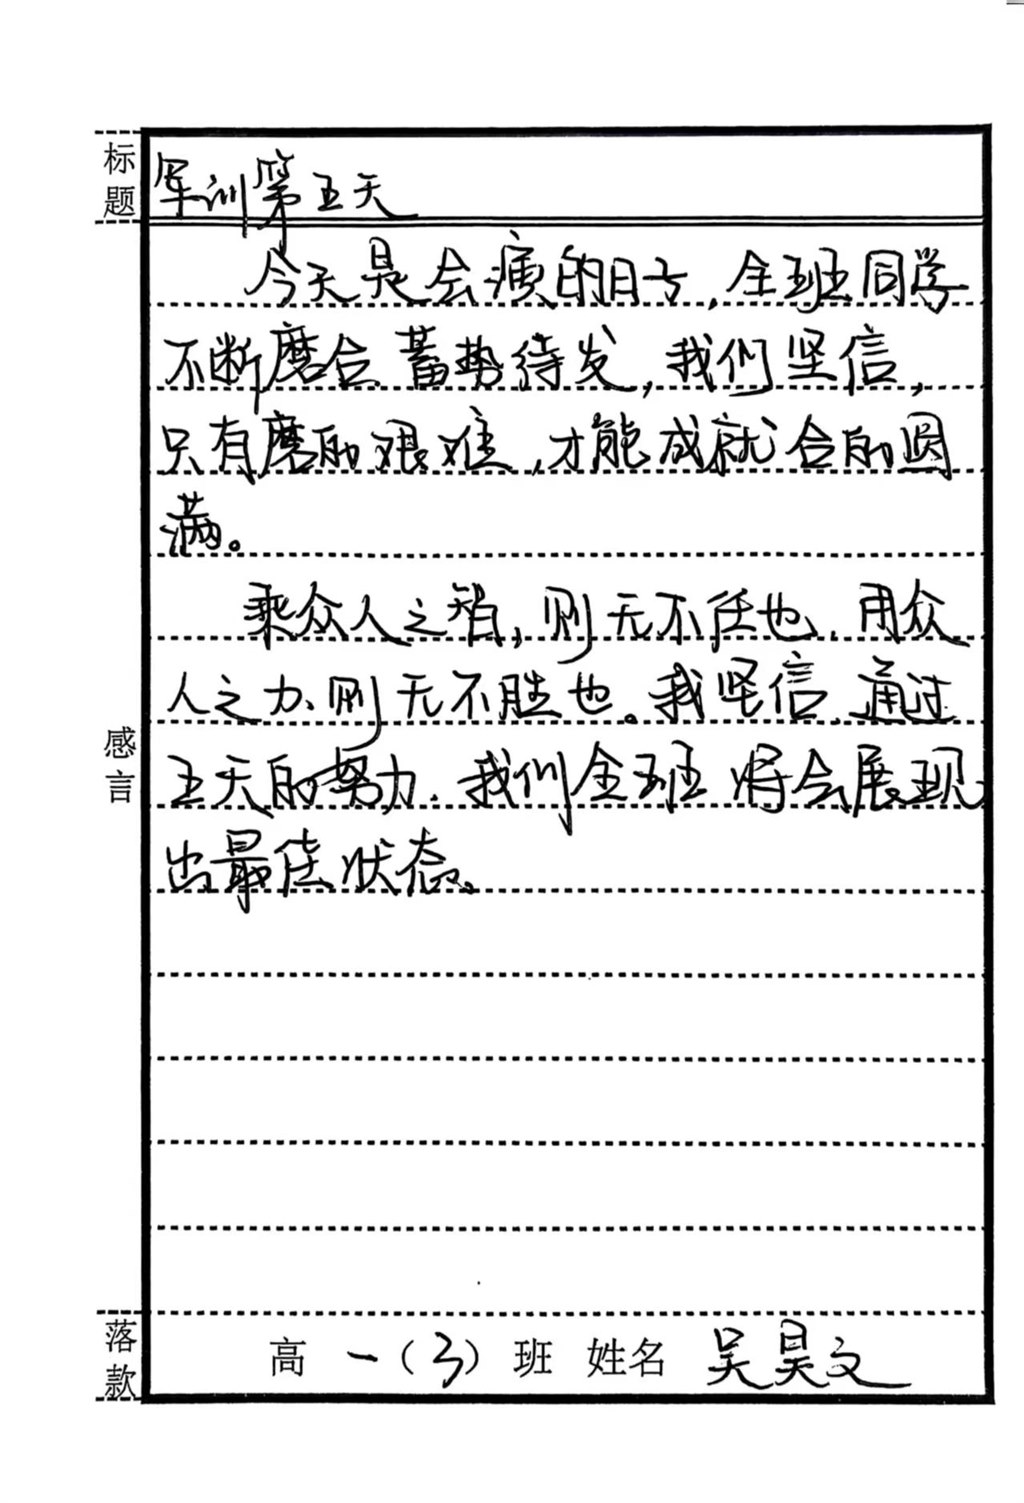 标题
军训第五天
今天是会演的日子,全班同学
不断磨合、蓄势待发,我们坚信,
只有磨的艰难,才能成就合的圆
满。
乘众人之智,则无不任也,用众
人之力、则无不胜也。我坚信,通过
五天的努力,我们全班将会展现
出最佳状态。
感言
落款
高一(3)班 姓名 吴昊文